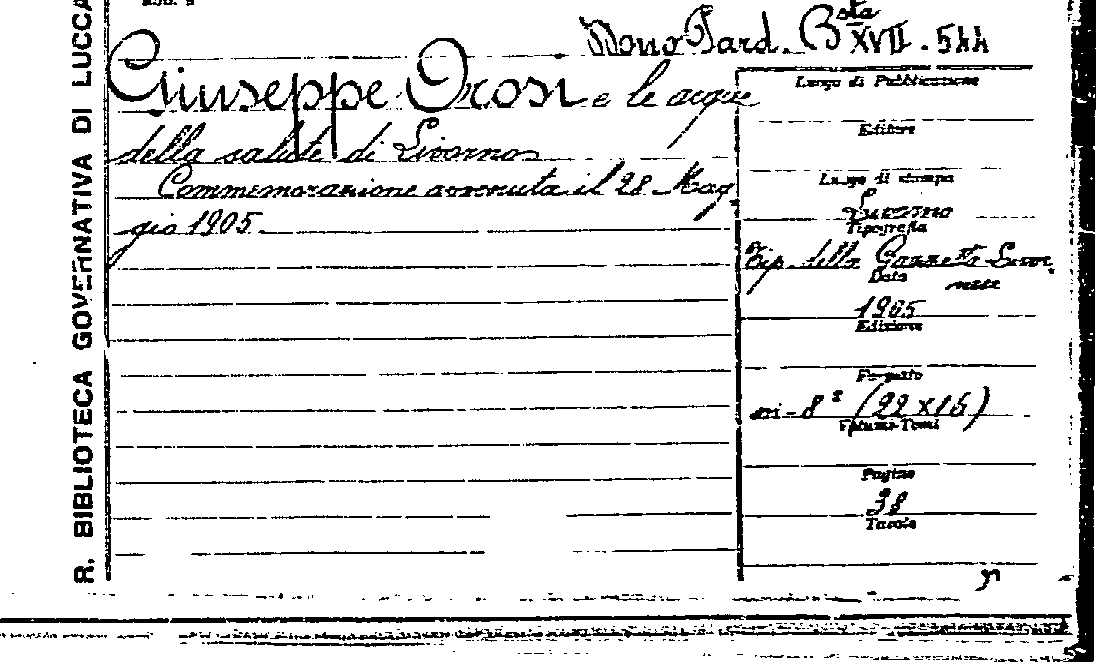 Mod. 2
R. BIBLIOTECA GOVERNATIVA DI LUCCA
Bsta XVII. 544
Giuseppe Orosi e le acque
della salute di Livorno
Commemorazione avvenuta il 28 Mag-
gio 1905.
Luogo di Pubblicazione
Editore
Luogo di stampa
Livorno
Tipografia
Tip. della Gazzetta Livor
nese
Data
1905
Edizione
Formato
in-8° (22x15)
Volumi-Tomi
Pagine
38
Tavole